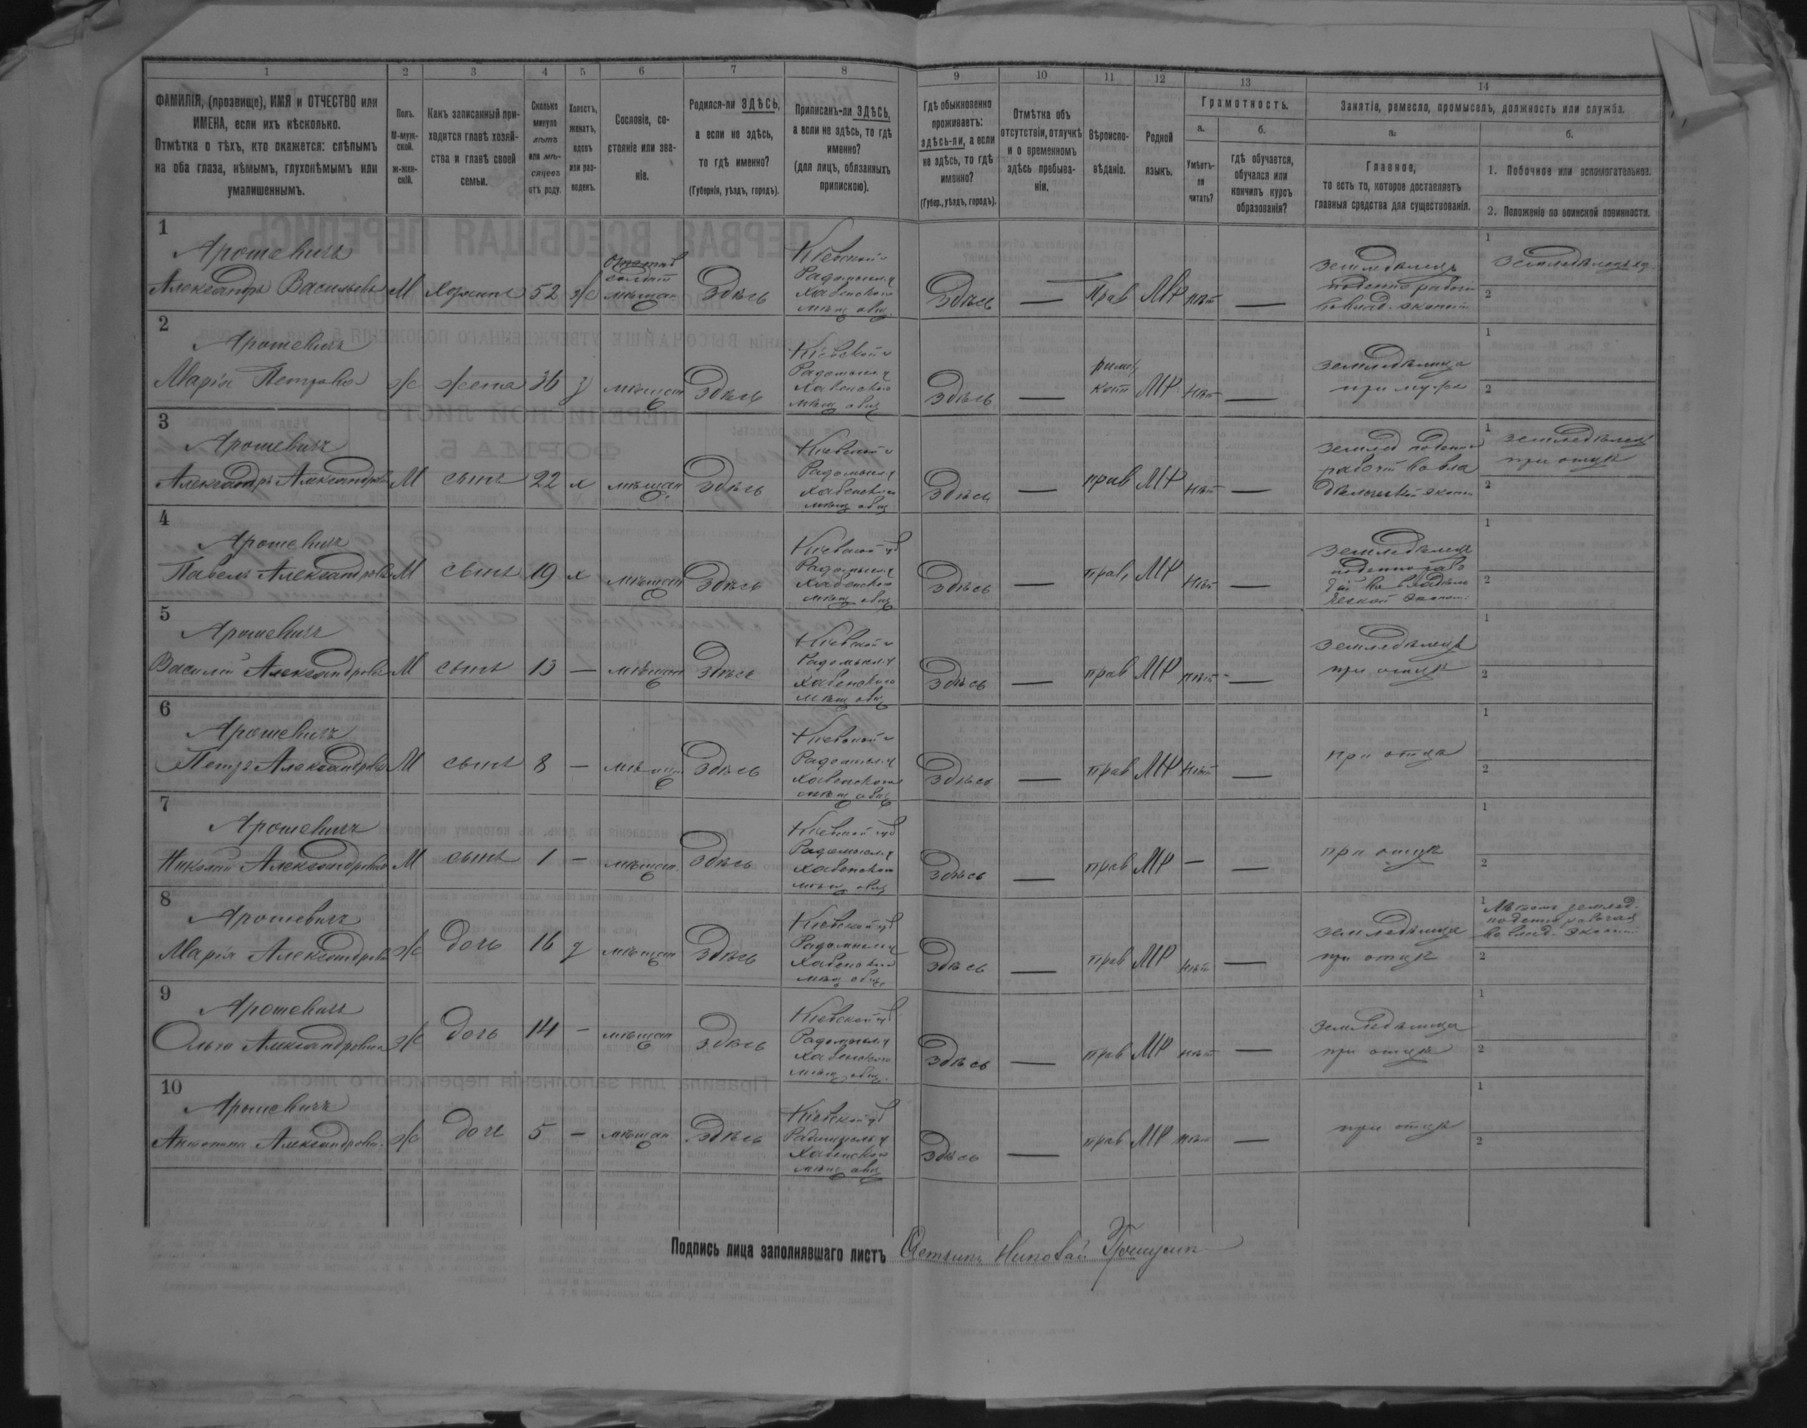 1 2 3 4 5 6 7 8 9 10 11 12 13 14
ФАМИЛІЯ, (прозвище), ИМЯ и ОТЧЕСТВО или
ИМЕНА, если ихъ нѣсколько.
Отмѣтка о тѣхъ, кто окажется: слѣпымъ
на оба глаза, нѣмымъ, глухонѣмымъ или
умалишеннымъ.
Полъ.
М-муж-
ской.
Ж-жен-
скій.
Какъ записанный при-
ходится главѣ хозяй-
ства и главѣ своей
семьи.
Сколько
минуло
лѣтъ
или мѣ-
сяцевъ
отъ роду.
Холостъ,
женатъ,
вдовъ
или раз-
веденъ.
Сословіе, со-
стояніе или зва-
ніе.
Родился-ли ЗДѢСЬ,
а если не здѣсь,
то гдѣ именно?
(Губернія, уѣздъ, городъ).
Приписанъ-ли ЗДѢСЬ,
а если не здѣсь, то гдѣ
именно?
(для лицъ, обязанныхъ
припискою).
Гдѣ обыкновенно
проживаетъ:
здѣсь-ли, а если
не здѣсь, то гдѣ
именно?
(Губер., уѣздъ, городъ).
Отмѣтка объ
отсутствіи, отлучкѣ
и о временномъ
здѣсь пребыва-
ніи.
Вѣроиспо-
вѣданіе.
Родной
языкъ.
Грамотность.
а.
Умѣетъ-
ли
читать?
б.
гдѣ обучается,
обучался или
кончилъ курсъ
образованія?
Занятіе, ремесло, промыселъ, должность или служба.
а.
Главное,
то есть то, которое доставляетъ
главныя средства для существованія.
б.
1. Побочное или вспомогательное.
2. Положеніе по воинской повинности.
1
Арошевичъ
Александръ Васильевъ М хозяинъ 52 ж
мѣщан.
Здѣсь
Кіевской г
Радомысл у
Хабенского
мѣщ общ
Здѣсь — Прав МР нѣт —
Земледѣлецъ
1
Земледѣлецъ
2
2
Арошевичъ
Марія Петрова ж жена 36 з мѣщан Здѣсь
Кіевской г
Радомысл у
Хабенского
мѣщ общ
Здѣсь —
римс
кат
МР нѣт —
земледѣлица
при мужѣ
1
2
3
Арошевичъ
Александръ Александровъ М сынъ 22 х мѣщан Здѣсь
Кіевской г
Радомысл у
Хабенского
мѣщ общ
Здѣсь — прав МР нѣт —
1
земледѣлец
при отцѣ
2
4
Арошевичъ
Павелъ Александровъ М сынъ 19 х мѣщан Здѣсь
Кіевской губ
Радомысл у
Хабенского
мѣщ общ
Здѣсь — прав, МР нѣт —
Земледѣлецъ
1
2
5
Арошевичъ
Василій Александровъ М сынъ 13 — мѣщан Здѣсь
Кіевской г
Радомысл у
Хабенского
мѣщ общ
Здѣсь — прав МР нѣт —
Земледѣлецъ
при отцѣ
1
2
6
Арошевичъ
Петръ Александровъ М сынъ 8 — мѣщан Здѣсь
Кіевской г
Радомысл у
Хабенского
мѣщ общ
Здѣсь — прав МР нѣт —
при отцѣ
1
2
7
Арошевичъ
Николай Александровъ М сынъ 1 — мѣщан. Здѣсь
Кіевской губ
Радомысл у
Хабенского
мѣщ общ
Здѣсь — прав МР — —
при отцѣ
1
2
8
Арошевичъ
Марія Александрова ж дочь 16 д мѣщан Здѣсь
Кіевской губ
Радомысл у
Хабенской
мѣщ общ
Здѣсь — прав МР нѣт —
земледѣлица
при отцѣ
1
2
9
Арошевичъ
Ольга Александровна ж дочь 14 — мѣщан Здѣсь
Кіевской губ
Радомысл у
Хабенского
мѣщ общ.
Здѣсь — прав МР нѣт —
Земледѣлица
при отцѣ
1
2
10
Арошевичъ
Антонина Александрова ж дочь 5 — мѣщан Здѣсь
Кіевской губ
Радомысл у
Хабенской
мѣщ общ
Здѣсь — прав МР нѣт —
при отцѣ
1
2
Подпись лица заполнявшаго листъ